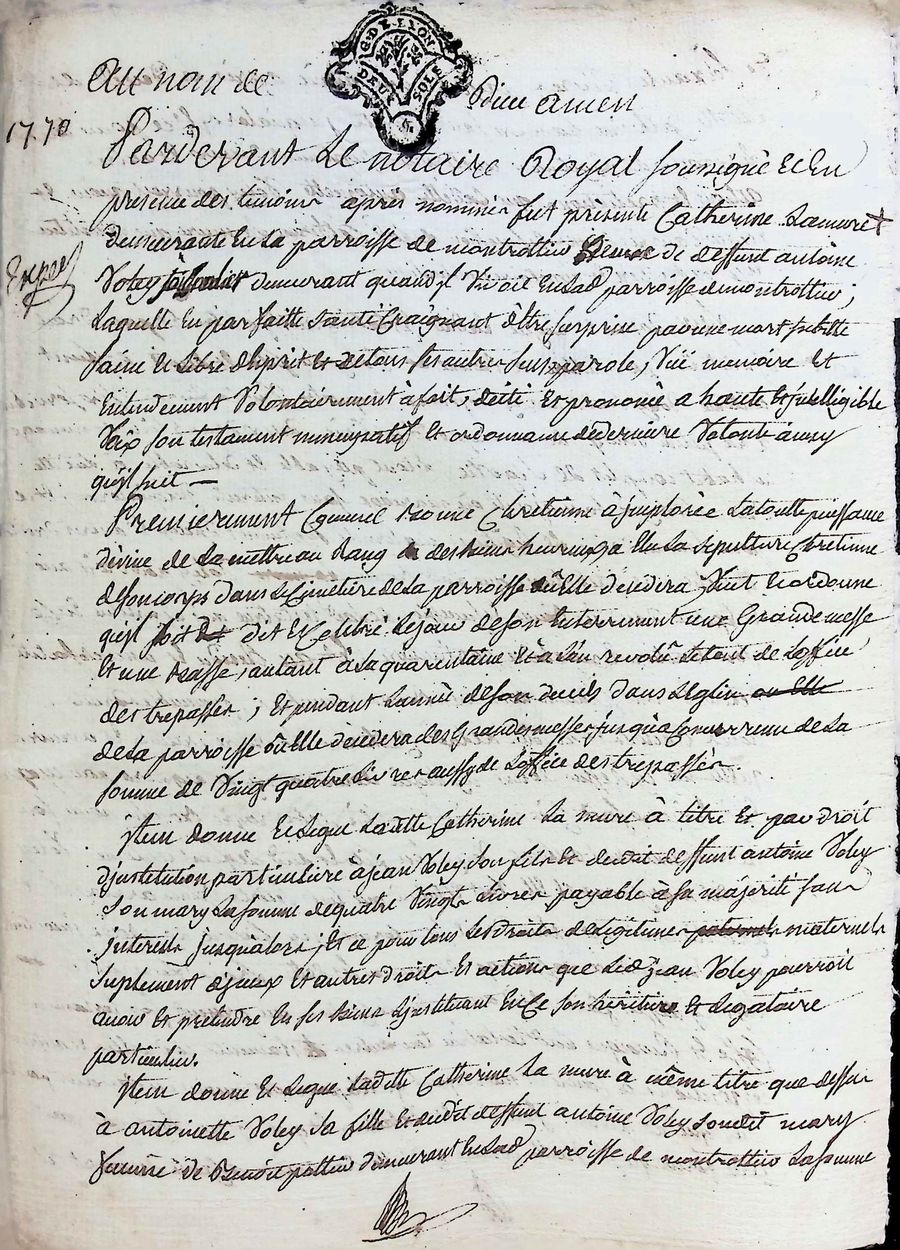 G.DE LYON
DEUX SOLS
Au nom de Dieu amen
1770
Pardevant Le notaire Royal soussigné Et En
presence des temoins après nommés fut présente Catherine Lamure
demeurante En La parroisse de montrottier veuve de deffunt antoine
Voley demeurant quand il vivoit En Lad parroisse de montrottier;
Laquelle En parfaitte santé Craignant d'être surprise par une mort subitte
saine Et Libre d'Esprit Et de tous ses autres sens parole, vüe memoire Et
Entendement Volontairement à fait, dicté Et prononcé a haute Et jntelligible
Voix son testament nuncupatif Et ordonnance de derniere Volonté ainsy
qu'jl suit —
Premierement Comme bonne Chretienne à jmplorée La toutte puissance
divine de La mettre au Rang des bien heureux, a Elu La sepulture Chretienne
de son corps dans Le Cimetiére de La parroisse où Elle décédera, Veut Et ordonne
qu'jl soit dit Et Celebré Le jour de son Enterrement une Grande messe
Et une basse, autant à La quarentaine Et à L'an revolû Le tout de Loffice
des trepassés; Et pendant L'année de son deces dans L'Eglise ou Elle
de La parroisse où Elle décédera des Grandes messes jusqu'à Concurrence de La
somme de Vingt quatre Livres aussy de Loffice des trepassés.
jtem donne Et Legue Laditte Catherine La mure à titre Et par droit
d'jnstitution particuliére à jean Voley son fils Et dudit deffunt antoine Voley
son mary La somme de quatre Vingts Livres payable à sa majorité sans
jnterest jusqu'alors; Et ce pour tous Les Droits de Legitimes paternels maternels
suplement d'jceux Et autres droits Et actions que Led jean Voley pourroit
avoir Et pretendre En ses biens L'jnstituant En Ce son héritier Et Legataire
particulier.
jtem donne Et Legue Laditte Catherine La mure à même titre que dessus
à antoinette Voley sa fille Et dudit deffunt antoine Voley sondit mary
femme de Benoit demeurant En Lad parroisse de montrottier La somme